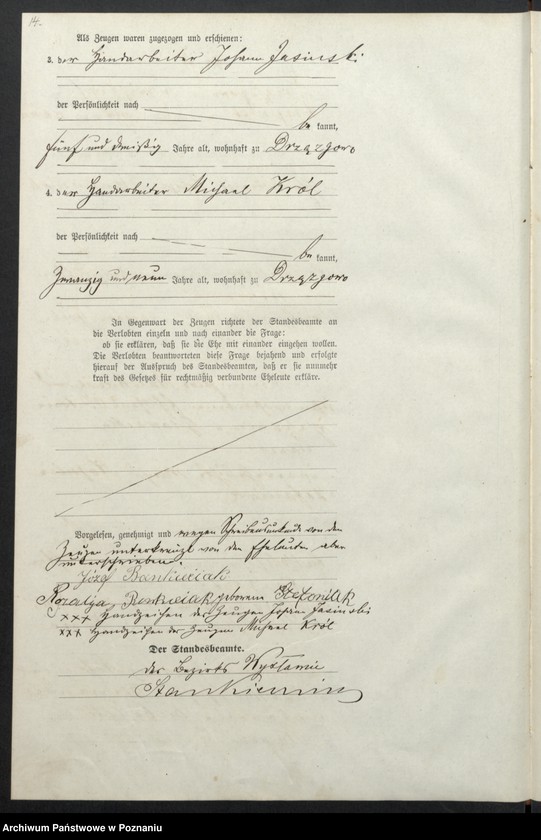 14.
Als Zeugen waren zugezogen und erschienen:
3. der Handarbeiter Johann Jasinski
der Persönlichkeit nach
be kannt,
fünf und dreißig Jahre alt, wohnhaft zu Drzązgowo
4. der Handarbeiter Michael Król
der Persönlichkeit nach
be kannt,
Zwanzig und neun Jahre alt, wohnhaft zu Drzązgowo
In Gegenwart der Zeugen richtete der Standesbeamte an
die Verlobten einzeln und nach einander die Frage:
ob sie erklären, daß sie die Ehe mit einander eingehen wollen.
Die Verlobten beantworteten diese Frage bejahend und erfolgte
hierauf der Ausspruch des Standesbeamten, daß er sie nunmehr
kraft des Gesetzes für rechtmäßig verbundene Eheleute erkläre.
Vorgelesen, genehmigt und wegen Schreibensunkunde von den
Zeugen unterkreuzt von den Eheleuten aber
unterschrieben.
Józef
Rozalija geborene
xxx Handzeichen des Zeugen Johann Jasinski
xxx Handzeichen des Zeugen Michael Król
Der Standesbeamte.
des Bezirks
Archiwum Państwowe w Poznaniu